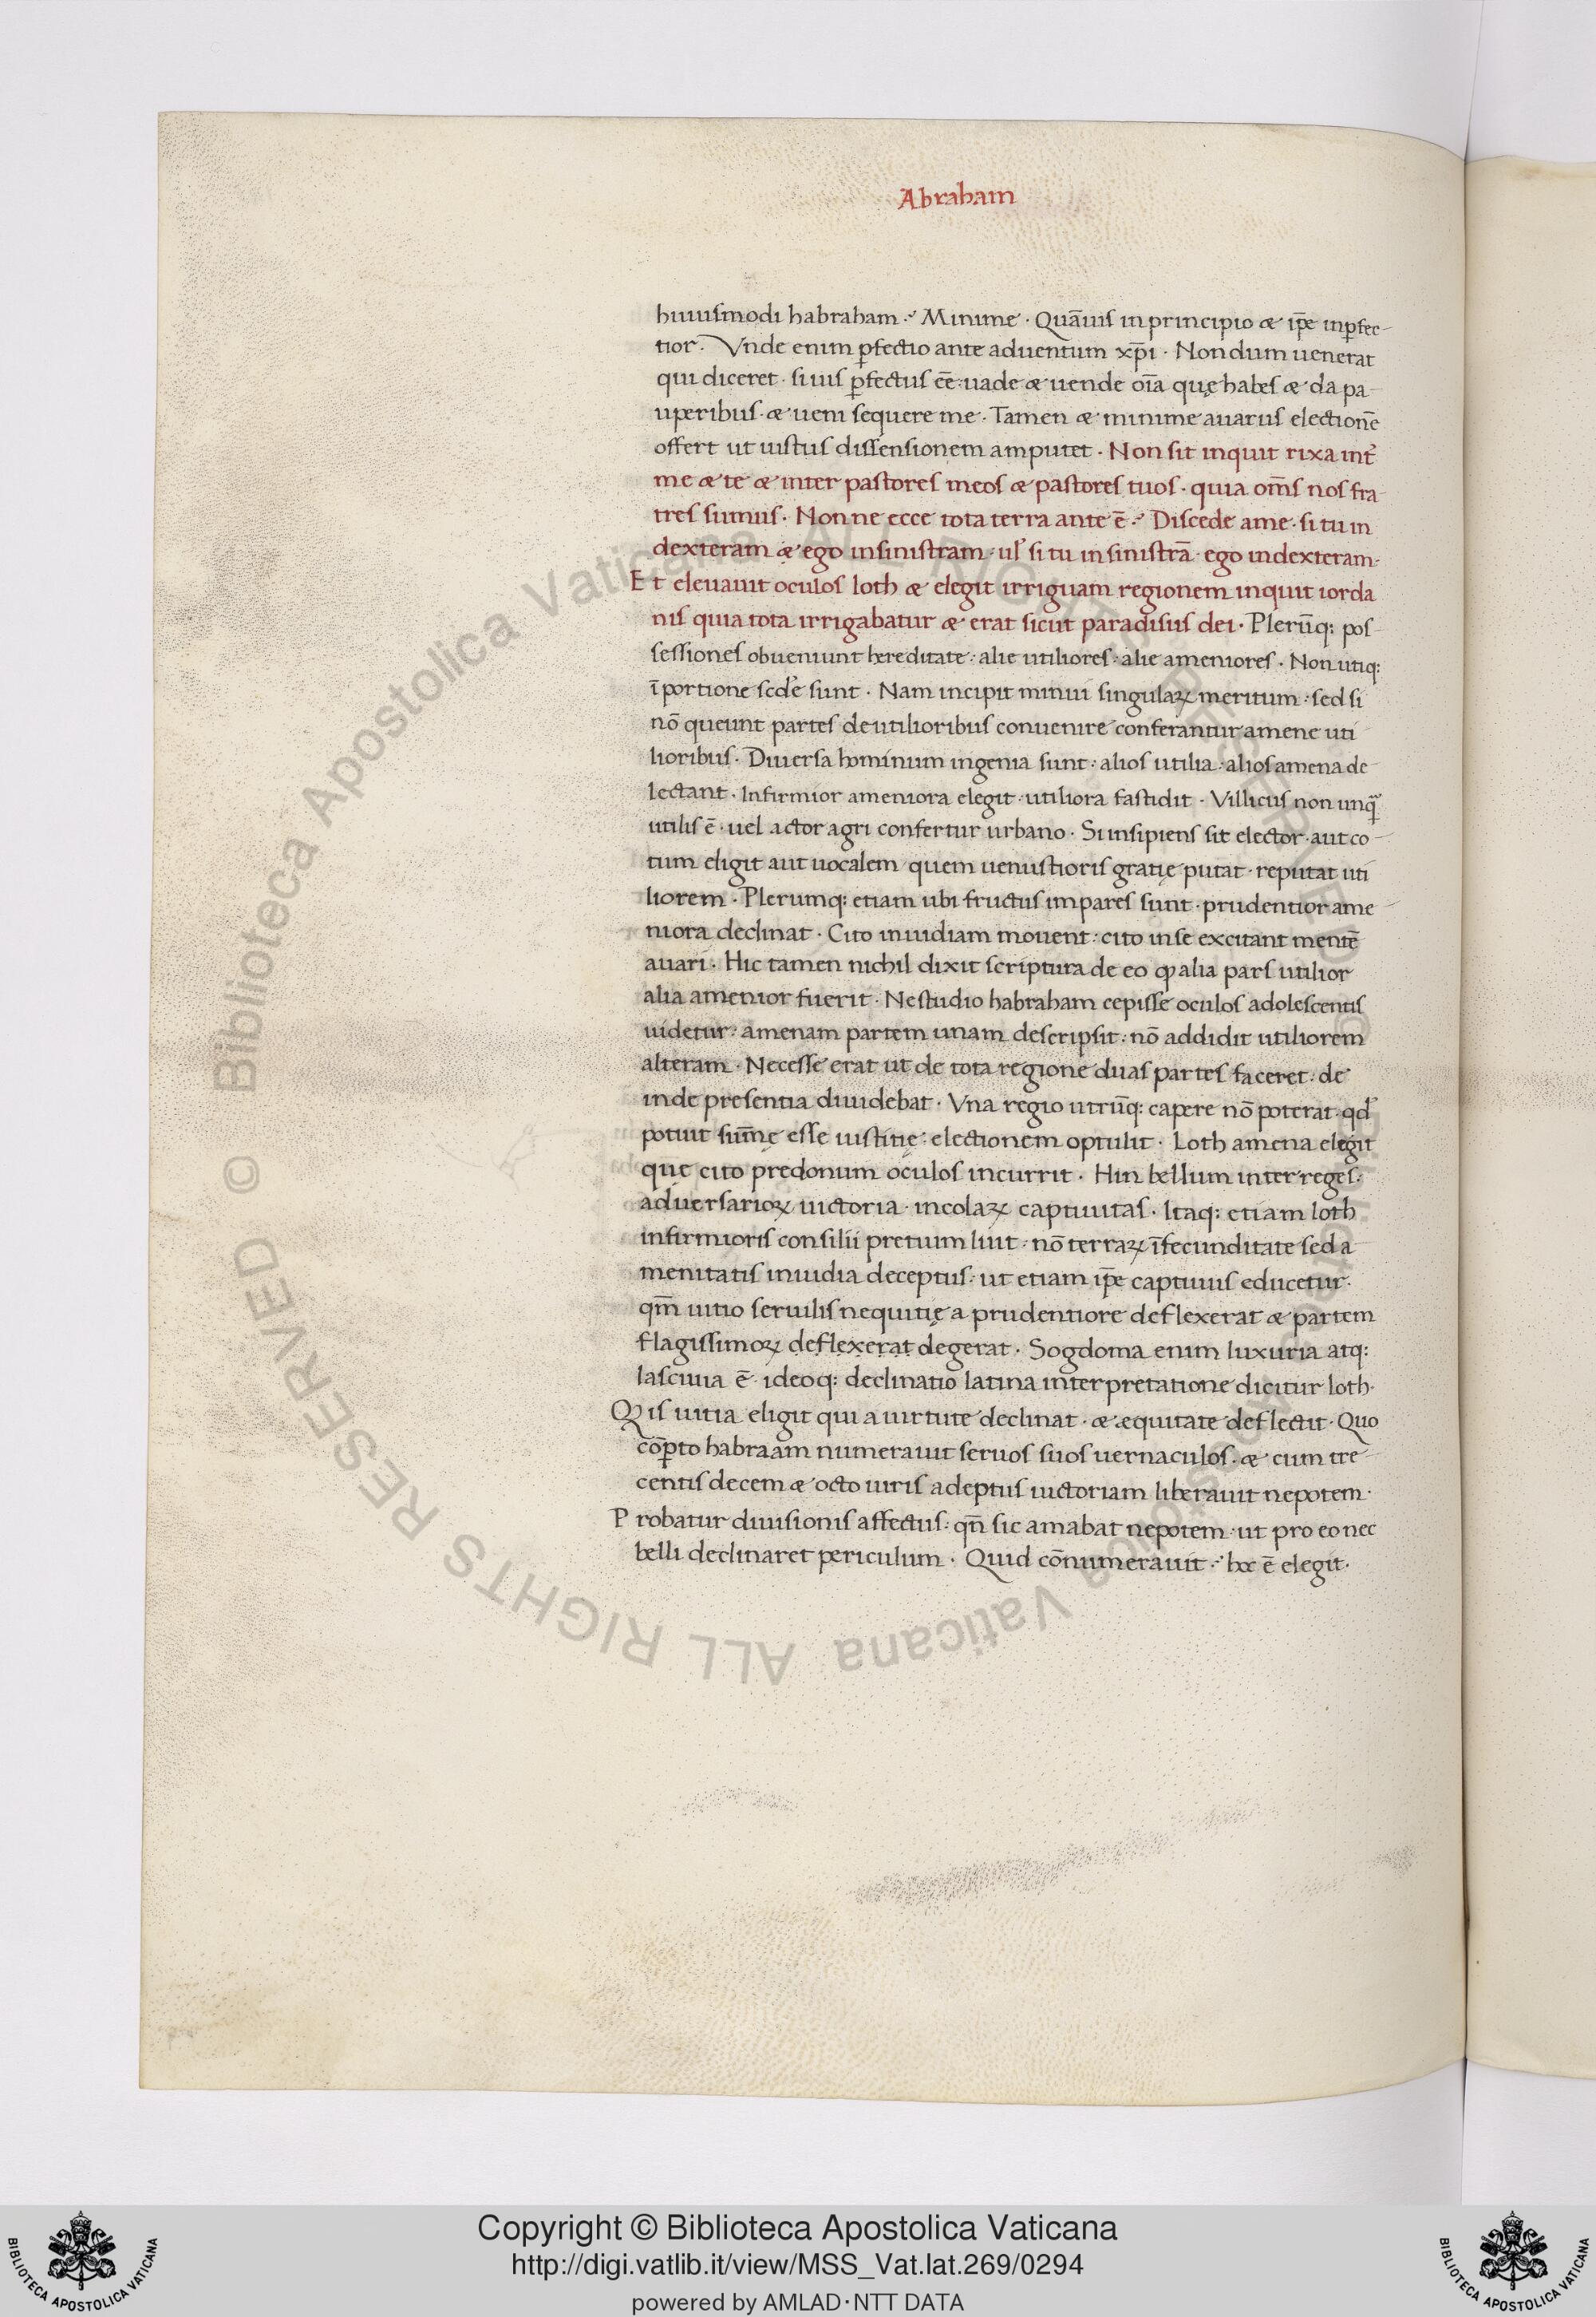 Abraham
huiusmodi habraham·᾿ Minime · Quāuis in principio æ ip̄e inꝑfec-
tior · Vnde enim ꝑfectio ante aduentum xp̄i · Nondum uenerat
qui diceret · si uis ꝑfectus ēē : uade æ uende oīa quę habes æ da pa-
uperibus · æ ueni sequere me · Tamen æ minime auarus electionē
offert ut iustus dissensionem amputet · Non sit inquit rixa int᾿
me æ te æ inter pastores meos æ pastores tuos · quia om̄s nos fra
tres sumus · Nonne ecce tota terra ante ē·᾿ Discede a me · si tu in
dexteram æ ego in sinistram · ul᾿ si tu in sinistrā · ego in dexteram·
Et eleuauit oculos loth æ elegit irriguam regionem inquit iorda
nis quia tota irrigabatur æ erat sicut paradisus dei · Plerūq: pos-
sessiones obueniunt hereditate : alie utiliores : alie ameniores · Non utiq:
ī portione sede᾿ sunt · Nam incipit minui singulaꝝ meritum : sed si
nō queunt partes de utilioribus conuenire conferantur amene uti
lioribus · Diuersa hominum ingenia sunt : alios utilia : alios amena de-
lectant · Infirmior ameniora elegit · utiliora fastidit · Villicus non unq̄
utilis ē · uel actor agri confertur urbano · Si insipiens sit elector · aut co-
tum eligit aut uocalem quem uenustioris gratię putat · reputat uti
liorem · Plerumq: etiam ubi fructus impares sunt · prudentior ame-
niora declinat · Cito inuidiam mouent : cito in se excitant mentē
auari · Hic tamen nichil dixit scriptura de eo ꝙ alia pars utilior
alia amenior fuerit · Ne studio habraham cepisse oculos adolescentis
uidetur : amenam partem unam descripsit : nō addidit utiliorem
alteram · Necesse erat ut de tota regione duas partes faceret : de
inde presentia diuidebat · Vna regio utrūq: capere nō poterat · qd᾿
potuit sum̄ę esse iustitię : electionem optulit · Loth amena elegit
quę cito predonum oculos incurrit · Hin bellum inter reges·
aduersarioꝝ uictoria · incolaꝝ captiuitas · Itaq: etiam loth
infirmioris consilii pretium luit · nō terraꝝ īfecunditate sed a
menitatis inuidia deceptus : ut etiam ip̄e captiuus educetur·
qm̄ uitio seruilis nequitię a prudentiore deflexerat æ partem
flagissimoꝝ deflexerat degerat · Sogdoma enim luxuria atq:
lasciuia ē · ideoq: declinatio latina interpretatione dicitur loth·
Qis uitia eligit qui a uirtute declinat · æ æquitate deflectit · Quo
cōꝑto habraam numerauit seruos suos uernaculos · æ cum tre-
centis decem æ octo uiris adeptus uictoriam liberauit nepotem·
Probatur diuisionis affectus : qn̄ sic amabat nepotem · ut pro eo nec
belli declinaret periculum · Quid cōnumerauit·᾿ hoc ē elegit·
Copyright © Biblioteca Apostolica Vaticana
http://digi.vatlib.it/view/MSS_Vat.lat.269/0294
powered by AMLAD·NTT DATA